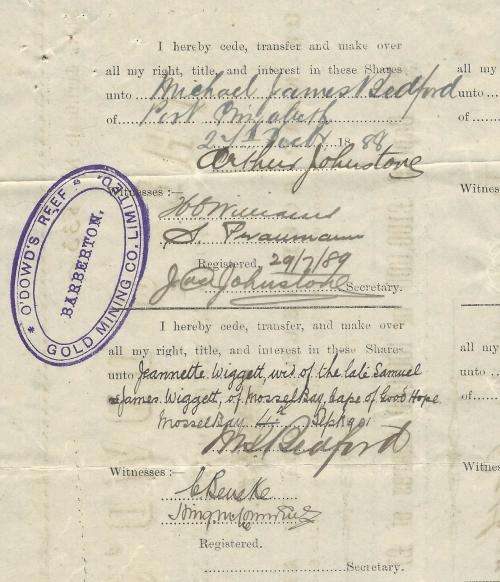 I hereby cede, transfer and make over
all my right, title, and interest in these Shares
unto Michael James Bedford
of Port Elizabeth
1888
Arthur Johnstone
Witnesses :—
Registered, 29/7/89
Johnstone Secretary.
O'DOWD'S REEF GOLD MINING CO. LIMITED.
BARBERTON.
I hereby cede, transfer, and make over
all my right, title, and interest in these Shares
unto Jeannette Wiggett, wid. of the late Samuel
James Wiggett, of Mossel Bay, Cape of Good Hope
Mossel Bay
Bedford
Witnesses :—
Registered.
Secretary.
all my
unto
of
Witnes
all my
unto
of
Witnes